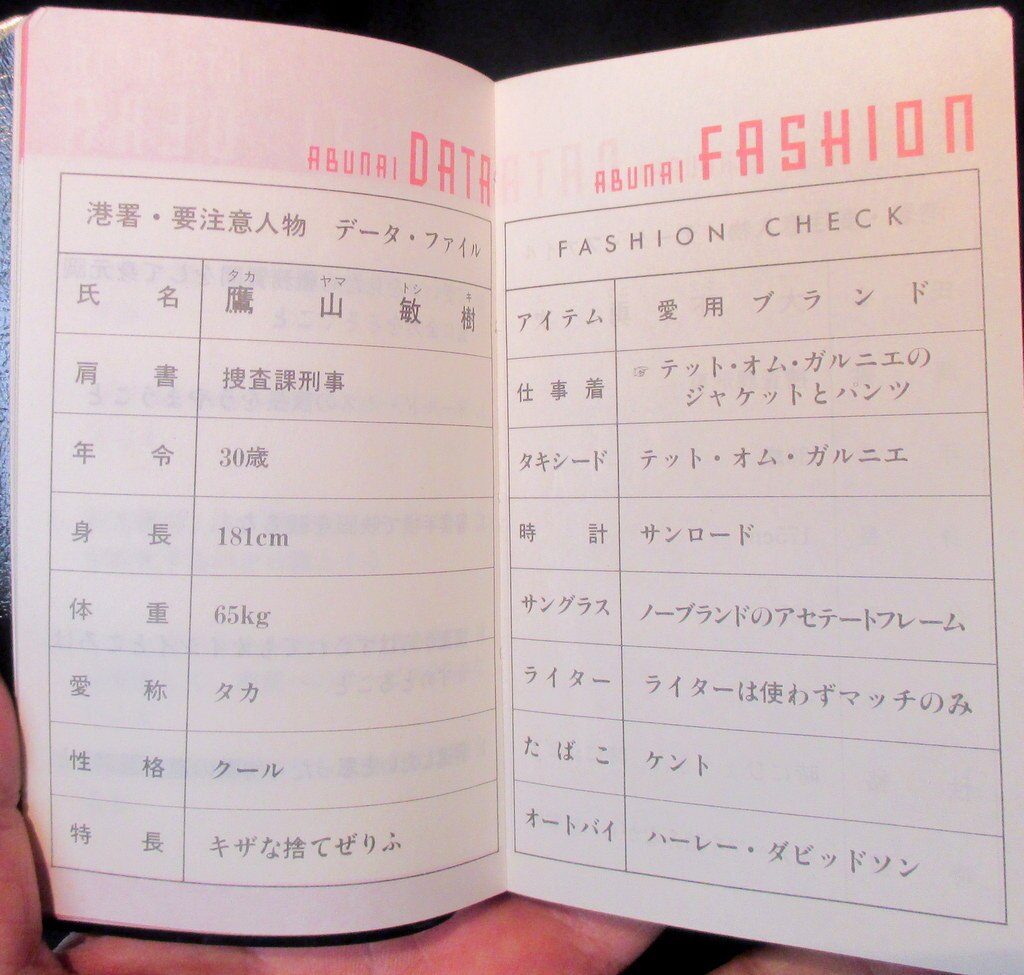 ABUNAI DATA
港署・要注意人物 データ・ファイル
氏名 鷹山敏樹
タカ ヤマ トシ キ
肩書 捜査課刑事
年令 30歳
身長 181cm
体重 65kg
愛称 タカ
性格 クール
特長 キザな捨てぜりふ
ABUNAI FASHION
FASHION CHECK
アイテム 愛用ブランド
仕事着 ☞テット・オム・ガルニエの
ジャケットとパンツ
タキシード テット・オム・ガルニエ
時計 サンロード
サングラス ノーブランドのアセテートフレーム
ライター ライターは使わずマッチのみ
たばこ ケント
オートバイ ハーレー・ダビッドソン